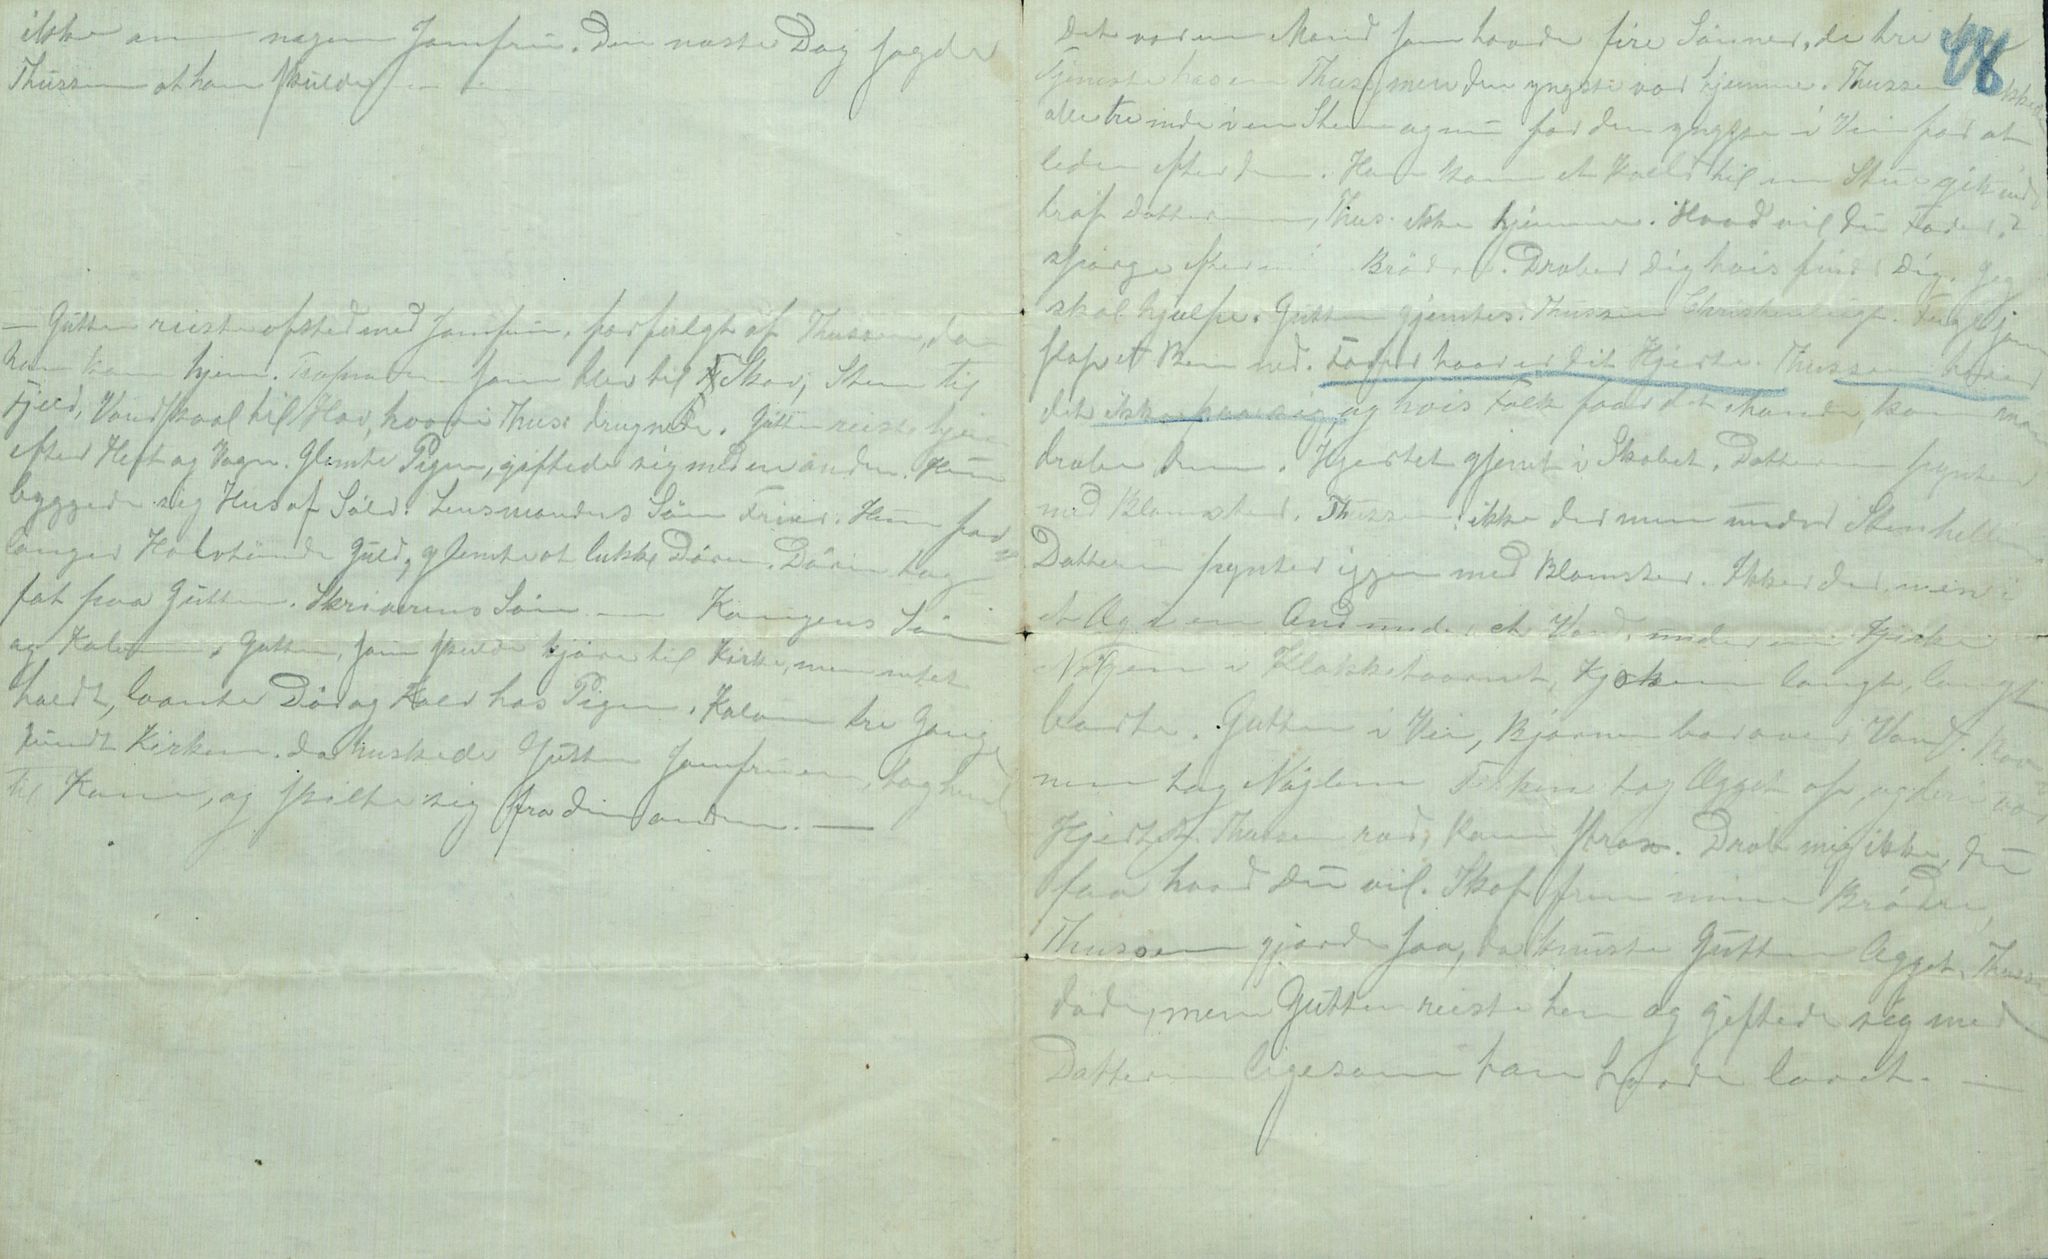 ikke om nogen Jomfru. Den næste Dag sagde
Thussen at han skulde
— Gutten reiste afsted med Jomfruen, forfulgt af Thussen, da
han kom hjem. som blev til Skov, Sten til
Fjeld, Vandskaal til Hav, hvor i Thus. drugnede. Gutten reiste hjem
efter Hest og Vogn. Glemte Pigen, giftede sig med en anden. Hun
byggede sig Hus af Sölv. Lensmandens Sön Frier. Hun for
langer Halvtönde Guld, glemte at lukke Dören. Dören tog
fat paa Gutten. Skriverens Sön — Kongens Sön
og Kalven. Gutten, som skulde kjöre til Kirke, men intet
holdt, laante Dör og Kalv hos Pigen. Kalven tre Gange
rundt Kirken. Da huskede Gutten Jomfruen, tog hende
til Kone, og skilte sig fra den anden. —
48
Det var en Mand som havde fire Sönner, de tre
Tjeneste hos en Thus, men den yngste var hjemme. Thussen
alle tre inde i en Sten og nu for den yngste i Vei for at
lede efter dem. Han kom et Kveld til en Stue gik ind
traf Datteren, Thus. ikke hjemme. Hvad vil du Fader?
spörge efter Brödre. Dræber Dig hvis finder Dig. Jeg
skal hjælpe. Gutten gjemtes. Thussen Christenlugt. Fugl
slap et Ben ned. Fader hvor er dit Hjerte. Thussen
det ikke paa sig, og hvis Folk faar det ihænde, kan man
dræbe dem. Hjertet gjemt i Skabet. Datteren pynter
med Blomster. Thussen: ikke der men under Stenhellen
Datteren pynter igjen med Blomster. Ikke der, men i
et Æg i en And under et Vand, under en Kjirke
Nöglen i Klokketaarnet, Kjirken langt, langt
borte. Gutten i Vei, Björnen bar over Vand.
nen tog Nöglen Fisken tog Ægget op, og deri var
Hjertet. Thussen ræd, kom strax. Dræb mig ikke, du
faa hvad du vil. Skaf frem mine Brödre,
Thussen gjorde saa, da knuste Gutten Ægget, Thussen
döde, men Gutten reiste hen og giftede sig med
Datteren ligesom han havde lovet. —